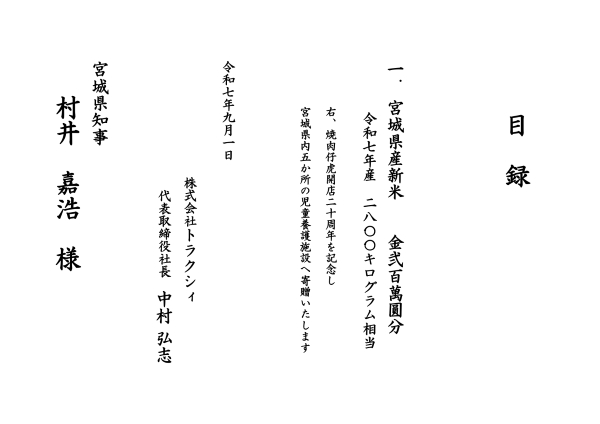 目録
一．宮城県産新米　金弐百萬圓分
令和七年産　二八〇〇キログラム相当
右、焼肉仔虎開店二十周年を記念し
宮城県内五か所の児童養護施設へ寄贈いたします
令和七年九月一日
株式会社トラクシィ
代表取締役社長　中村 弘志
宮城県知事
村井　嘉浩　様